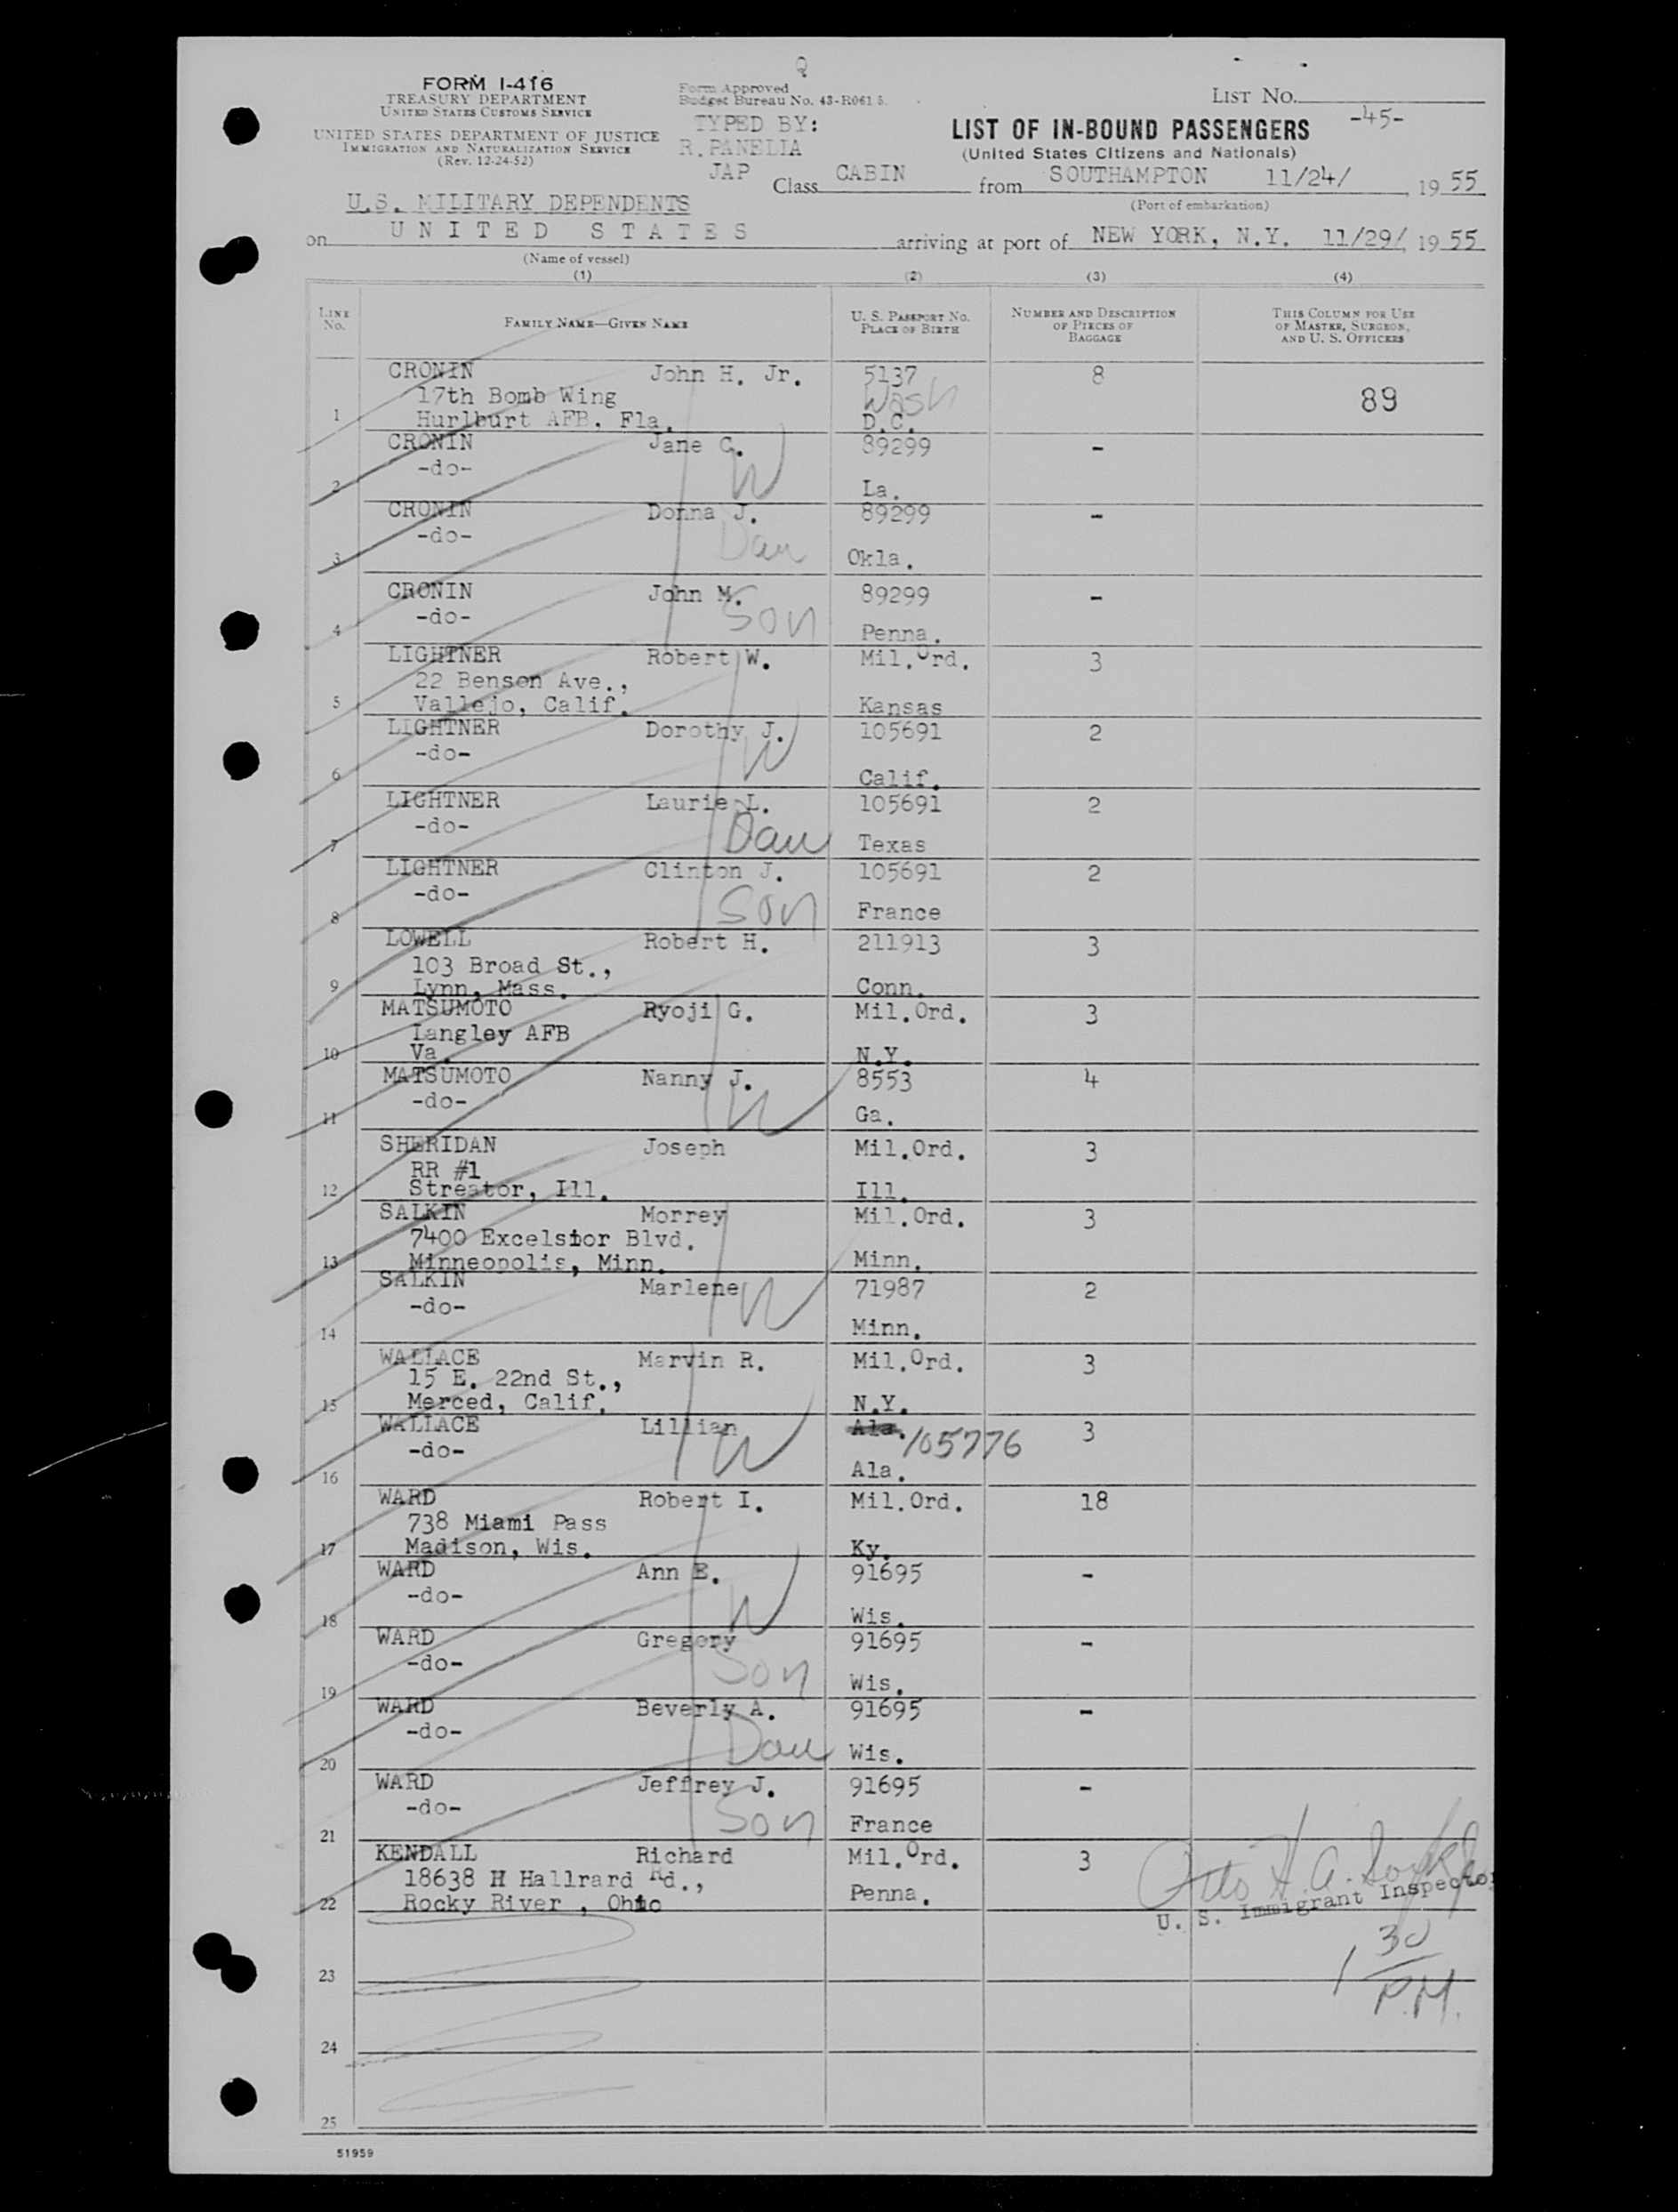 Q
FORM I-416
TREASURY DEPARTMENT
UNITED STATES CUSTOMS SERVICE
UNITED STATES DEPARTMENT OF JUSTICE
IMMIGRATION AND NATURALIZATION SERVICE
(Rev. 12-24-52)
Form Approved
Budget Bureau No. 43-R061 5.
TYPED BY:
R. PANELIA
JAP
LIST No.
-45-
LIST OF IN-BOUND PASSENGERS
(United States Citizens and Nationals)
Class CABIN from SOUTHAMPTON 11/24/, 19 55
(Port of embarkation)
U.S. MILITARY DEPENDENTS
on UNITED STATES arriving at port of NEW YORK, N.Y. 11/29/, 19 55
(Name of vessel)
(1) (2) (3) (4)
LINE No. FAMILY NAME—GIVEN NAME U. S. PASSPORT No. PLACE OF BIRTH NUMBER AND DESCRIPTION OF PIECES OF BAGGAGE THIS COLUMN FOR USE OF MASTER, SURGEON, AND U. S. OFFICERS
CRONIN John H. Jr. 5137 8
17th Bomb Wing Wash 89
1 Hurlburt AFB, Fla. D.C.
CRONIN Jane C. 89299 -
-do- W
2 La.
CRONIN Donna J. 89299 -
-do- Dau
3 Okla.
CRONIN John M. 89299 -
-do- Son
4 Penna.
LIGHTNER Robert W. Mil.Ord. 3
22 Benson Ave.,
5 Vallejo, Calif. Kansas
LIGHTNER Dorothy J. 105691 2
-do- W
6 Calif.
LIGHTNER Laurie L. 105691 2
-do- Dau
7 Texas
LIGHTNER Clinton J. 105691 2
-do- Son
8 France
LOWELL Robert H. 211913 3
103 Broad St.,
9 Lynn, Mass. Conn.
MATSUMOTO Ryoji G. Mil.Ord. 3
Langley AFB
10 Va. N.Y.
MATSUMOTO Nanny J. 8553 4
-do- W
11 Ga.
SHERIDAN Joseph Mil.Ord. 3
RR #1
12 Streator, Ill. Ill.
SALKIN Morrey Mil.Ord. 3
7400 Excelsior Blvd.
13 Minneopolis, Minn. Minn.
SALKIN Marlene W 71987 2
-do-
14 Minn.
WALLACE Marvin R. Mil.Ord. 3
15 E. 22nd St.,
15 Merced, Calif. N.Y.
WALLACE Lillian Ala. 105776 3
-do- W
16 Ala.
WARD Robert I. Mil.Ord. 18
738 Miami Pass
17 Madison, Wis. Ky.
WARD Ann E. 91695 -
-do- W
18 Wis.
WARD Gregory 91695 -
-do- Son
19 Wis.
WARD Beverly A. 91695 -
-do- Dau
20 Wis.
WARD Jeffrey J. 91695 -
-do- Son
21 France
KENDALL Richard Mil.Ord. 3
18638 H Hallrard Rd., Otto H. A.
22 Rocky River , Ohio Penna. U. S. Immigrant Inspector
1 30
P.M.
23
24
25
51959